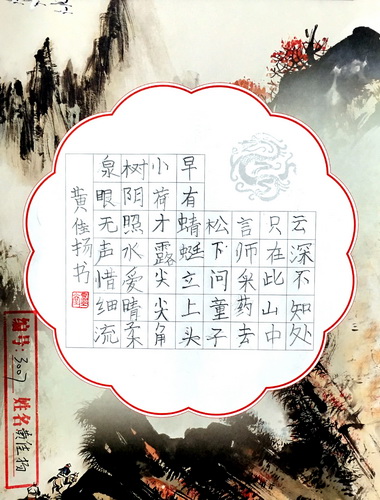 泉眼无声惜细流
树阴照水爱晴柔
小荷才露尖尖角
早有蜻蜓立上头
松下问童子
言师采药去
只在此山中
云深不知处
黄佳扬书
编号:3007 姓名 黄佳扬